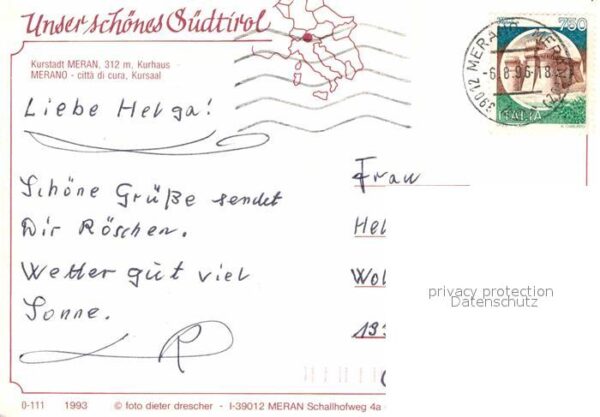 Unser schönes Südtirol
Kurstadt MERAN, 312 m, Kurhaus
MERANO - città di cura, Kursaal
750
39012 MERANO
-6.8.96-18
ITALIA
Liebe Helga!
Schöne Grüße sendet
Dir Röschen.
Wetter gut viel
Sonne.
R
Frau
Hel
Wol
privacy protection
Datenschutz
0-111 1993 © foto dieter drescher - I-39012 MERAN Schallhofweg 4a